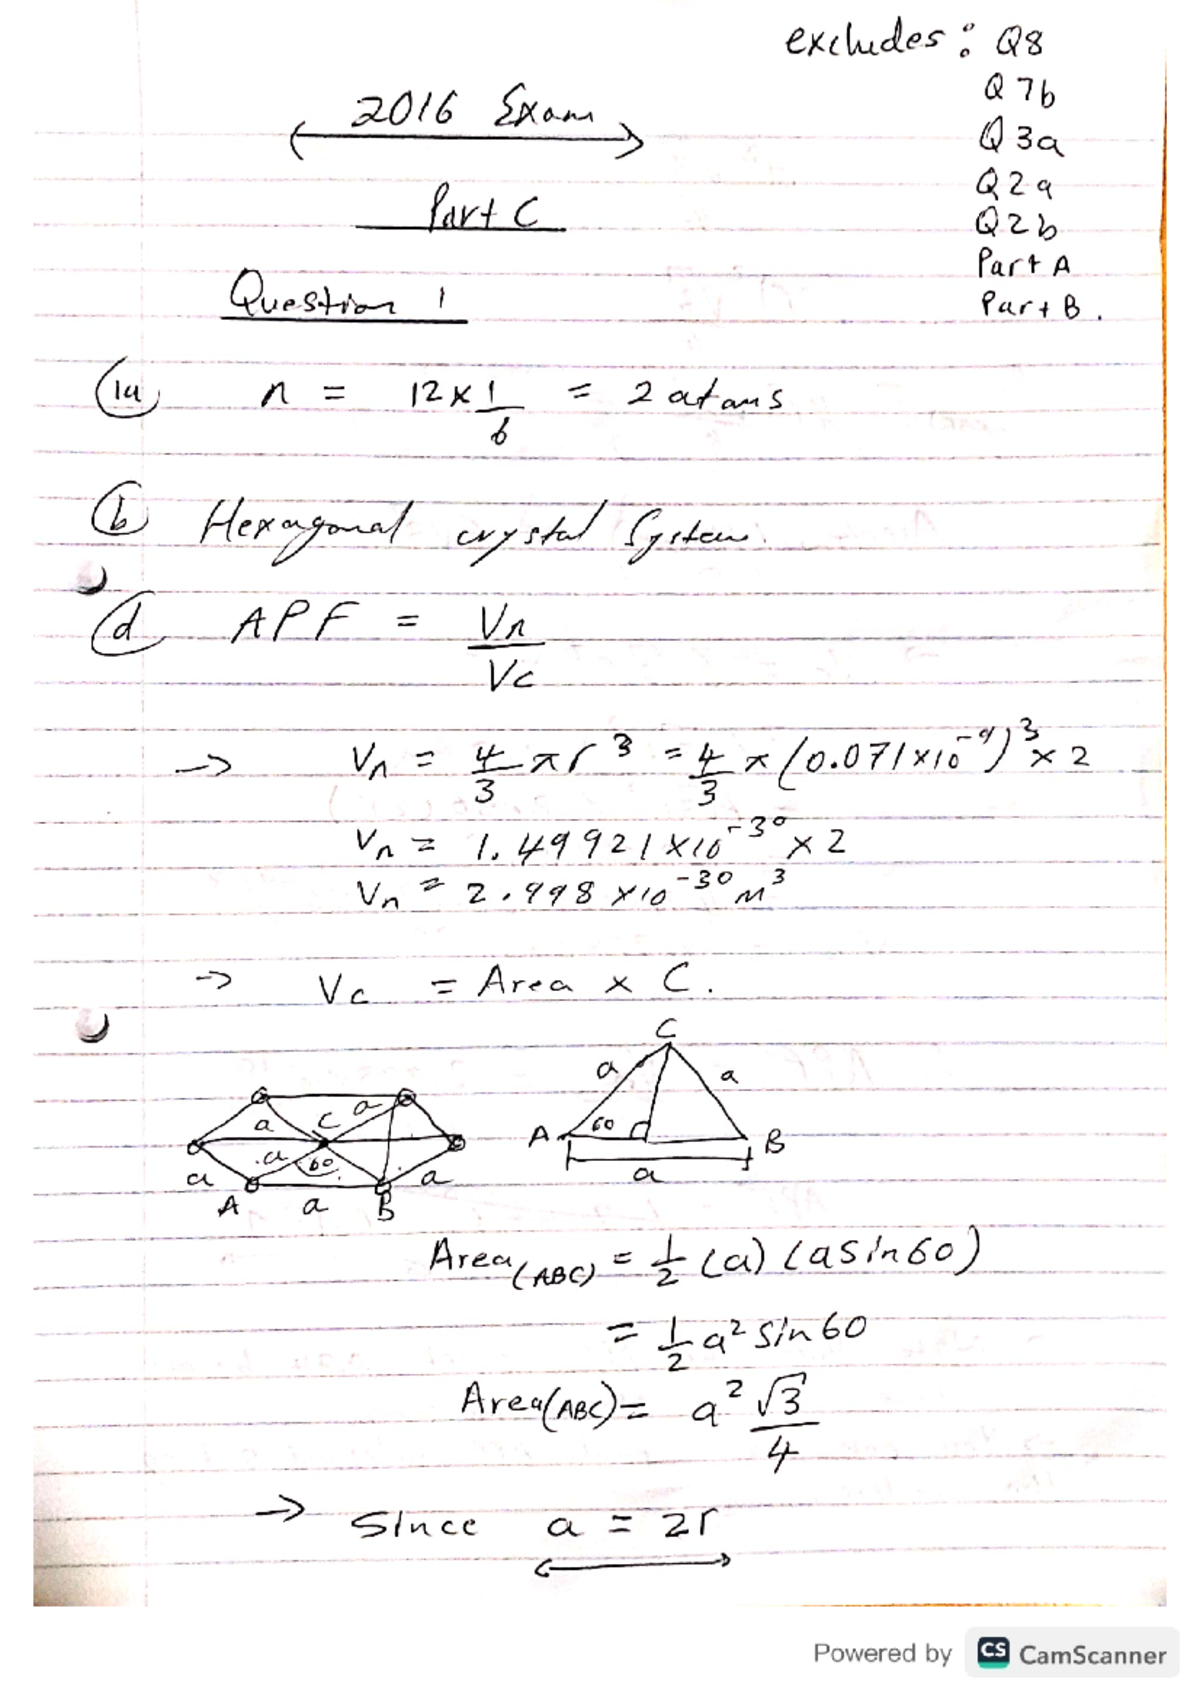 excludes: Q8
Q 7b
2016 Exam
Q 3a
Q 2a
Part C
Q 2b
Part A
Question 1
Part B.
1a n = 12 × 1/6 = 2 atoms
b Hexagonal crystal System.
d APF = Vn/Vc
→ Vn = 4/3 π r³ = 4/3 π (0.071×10⁻⁹)³ × 2
Vn = 1.49921×10⁻³⁰ × 2
Vn = 2.998 ×10⁻³⁰ m³
→ Vc = Area × C.
C
a a
a C a
A 60 B
a a 60 a
a
A a B
Area(ABC) = 1/2 (a) (a sin60)
= 1/2 a² sin 60
Area(ABC) = a² √3/4
→ Since a = 2r
Powered by CS CamScanner